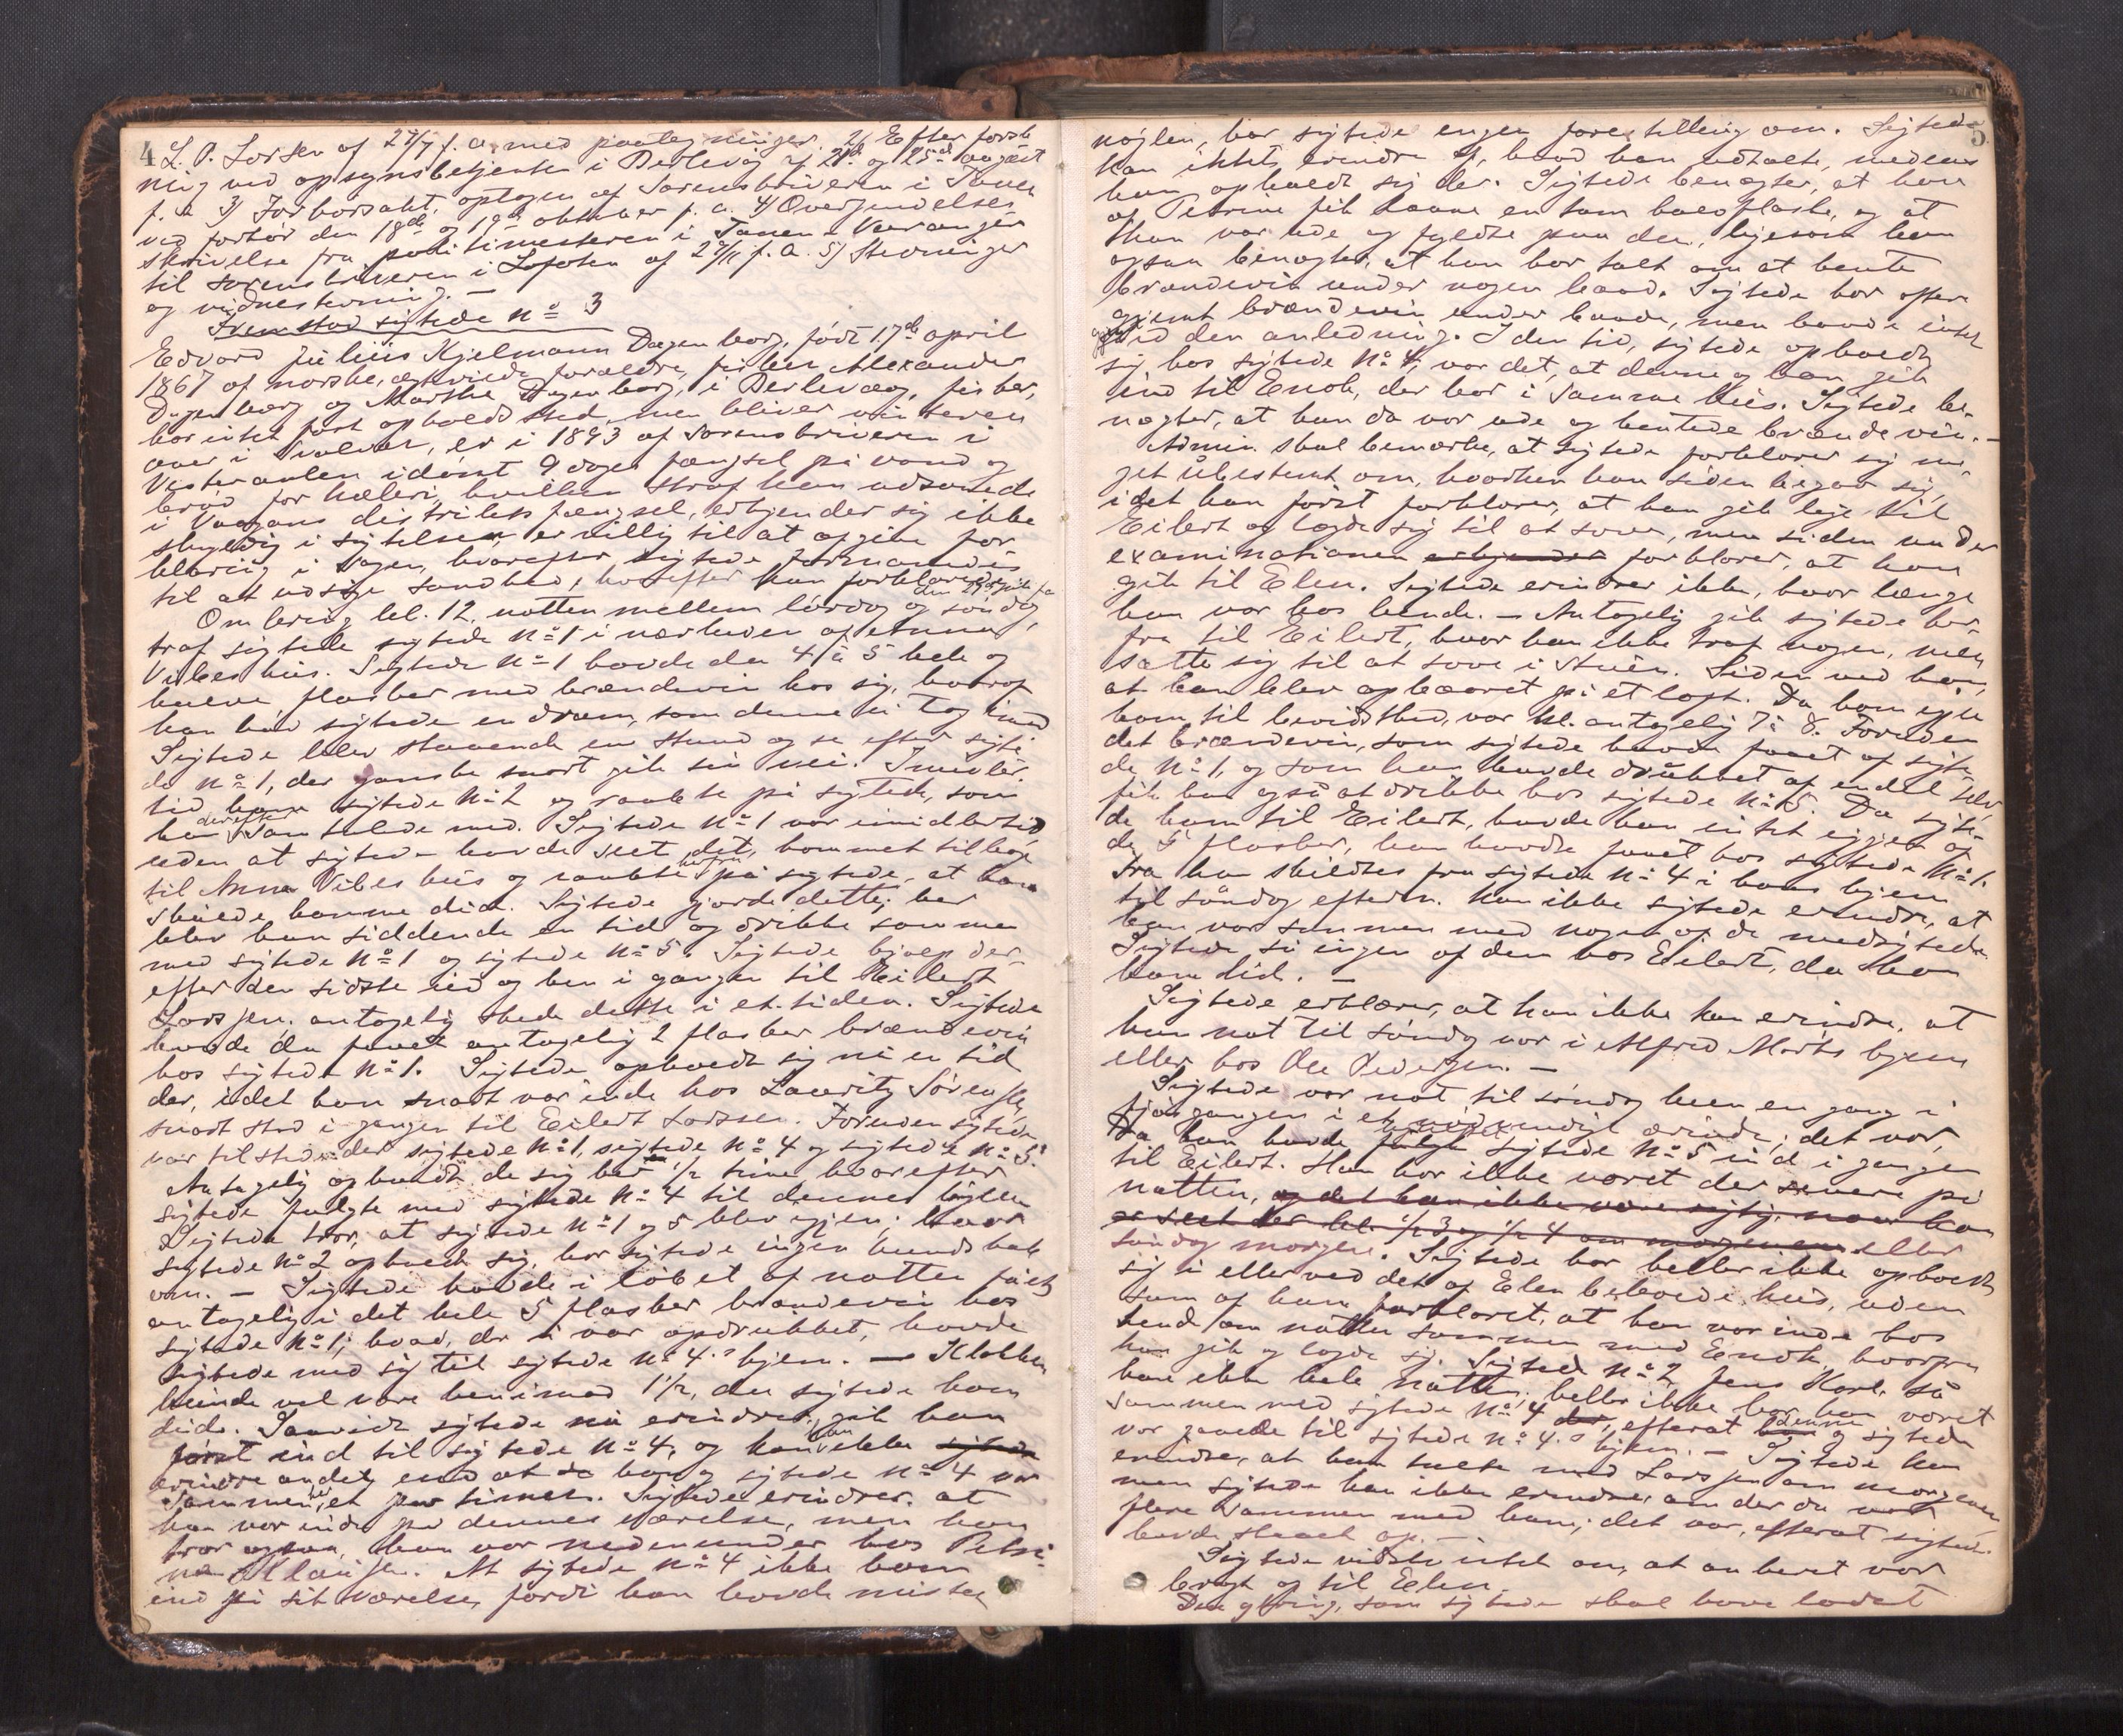 4
L. P. Larsen af 27/7 f. a. med paategninger. 2) Efter forsk
ning ved opsynsbetjenten i Berlevåg af 21de og 25de august
f. a. 3) Forhørsakt, optagen af Sorenskriveren i Tanen
ved forhør den 18de og 19de oktober f. a. 4) Oversendelses
skrivelse fra politimesteren i Tanen & Varanger
til sorenskriveren i Lofoten af 29/11 f. a. 5) Stevninger
og vidnestevning. —
Frem stod sigtede No 3
Edvard Julius Kjelmann Dagenborg, født 17de april
1867 af norske, ægteviede forældre, fisker Alexander
Dagenborg og Marthe Dagenborg, i Berlevåg, fisker,
har intet fast opholdssted, men bliver vinteren
over i Svolvær, er i 1893 af Sorenskriveren i
Vesteraalen idømt 9 dages fængsel på vand og
brød for hæleri, hvilken straf han udsonede
i Vaagans distrikts fængsel, erkjender sig ikke
skyldig i sigtelsen, er villig til at afgive for
klaring i sagen, hvorefter sigtede formanedes
til at udsige sandhed, hvorefter han forklarede:
Omkring kl. 12, natten mellem lørdag og søndag,
traf sigtede sigtede No 1 i nærheden af Anna
Vibes hus. Sigtede No 1 havde da 4 à 5 hele og
halve flasker med brændevin hos sig, hvoraf
han bød sigtede en dram, som denne ei tog imod
Sigtede blev staaende en stund og se efter sigte
de No 1, der ganske snart gik sin vei. Imidler
tid kom sigtede No 2 og raabte på sigtede, som
han derefter samtalede med. Sigtede No 1 var imidlertid
uden at sigtede havde seet det, kommet tilbage
til Anna Vibes hus og raabte herfra på sigtede, at han
skulde komme did. Sigtede gjorde dette; her
blev han siddende en tid og drikke sammen
med sigtede No 1 og sigtede No 5. Sigtede hjalp der-
efter den sidste ud og hen i gangen til Eilert
Larssen. antagelig skede dette i et-tiden. Sigtede
havde da faaet antagelig 2 flasker brændevin
hos sigtede No 1. Sigtede opholdt sig nu en tid
der, idet han snart var inde hos Lauritz Sørensen,
snart stod i gangen til Eilert Larssen. Foruden sigtede
var tilstede der sigtede No 1, sigtede No 4 og sigtede No 5.
Antagelig opholdt de sig her en 1/2 time hvorefter
sigtede fulgte med sigtede No 4 til dennes hjem
Sigtede tror, at sigtede No 1 og 5 blev igjen; hvor
sigtede No 2 opholdt sig, har sigtede ingen kundskab
om. — Sigtede havde i løbet af natten fået
antagelig i det hele 5 flasker brændevin hos
sigtede No 1; hvad, der ei var opdrukket, havde
sigtede med sig til sigtede No 4.s hjem. — Klokken
kunde vel være henimod 1 1/2, da sigtede kom
did. Saavidt sigtede nu erindrer, gik han
først ind til sigtede No 4, og kan han ikke sigtede
erindre andet end at han og sigtede No 4 var
sammen her et par timer. Sigtede erindrer at
han var inde på dennes værelse, men han
tror ogsaa, han var nedenunder hos Petri-
ne Klausen. At sigtede No 4 ikke kom
ind på sit værelse, fordi han havde mistet
5
nøglen, har sigtede ingen forestilling om. Sigtede
kan ikke erindre af, hvad han udtalte, medens
han opholdt sig der. Sigtede benægter, at han
af Petrine fik laane en tom halvflaske, og at
han var ude og fyldte paa den, ligesom han
ogsaa benægter, at han har talt om at hente
brændevin under nogen baad. Sigtede har ofte
gjemt brændevin under baade, men havde intet
gjemt ved den anledning. I den tid, sigtede opholdt
sig hos sigtede No 4, var det, at denne og han gik
ind til Enok, der bor i samme hus. Sigtede be-
nægter, at han da var ude og hentede brændevin. —
Admin. skal bemærke, at sigtede forklarer sig me-
get ubestemt om, hvorhen han siden begav sig,
idet han først forklarer, at han gik lige til
Eilert og lagde sig til at sove, men siden under
examinationen erkjender forklarer, at han
gik til Elen. Sigtede erindrer ikke, hvor længe
han var hos hende. — Antagelig gik sigtede her-
fra til Eilert, hvor han ikke traf nogen, men
satte sig til at sove i stuen. Siden ved han,
at han blev opbaaret på et loft. Da han igjen
kom til bevidsthed, var kl. antagelig 7 à 8. Foruden
det brændevin, som sigtede havde faaet af sigte-
de No 1, og som han havde drukket af endel selv,
fik han også at drikke hos sigtede No 5. Da sigte-
de kom til Eilert, havde han intet igjen af
de 5 flasker, han havde faaet hos sigtede No 1.
Fra han skildtes fra sigtede No 4 i hans hjem
til søndag efterm. kan ikke sigtede erindre, at
han var sammen med nogen af de medsigtede.
Sigtede så ingen af dem hos Eilert, da han
kom did. —
Sigtede erklærer, at han ikke kan erindre, at
han nat til søndag var i Alfred Morks hjem
eller hos Ole Pedersen. —
Sigtede var nat til søndag kun en gang i
fjøsgangen i et nødvendigt ærinde; det var,
da han havde fulgt sigtede No 5 ind i gangen
til Eilert. Han har ikke været der senere på
natten, og det kan ikke være rigtig, naar han
er seet der kl. 1/2 3 og 1/2 4 om morgenen eller
søndag morgen. Sigtede har heller ikke opholdt
sig i eller ved det af Elen beboede hus, uden
som af ham forklaret, at han var inde hos
hende om natten sammen med Enok, hvorfra
han gik og lagde sig. Sigtede No 2 Jens Karl så
han ikke hele natten; heller ikke har han været
sammen med sigtede No 4 der, efterat han denne og sigtede
var gaaede til sigtede No 4.s hjem. — Sigtede kan
erindre, at han talte med Larssen om morgenen
men sigtede kan ikke erindre, om der da var
flere sammen med ham; det var, efterat sigtede
havde staaet op. —
Sigtede vidste intet om, at ankeret var
bragt op til Elen.
Den ytring, som sigtede skal have ladet